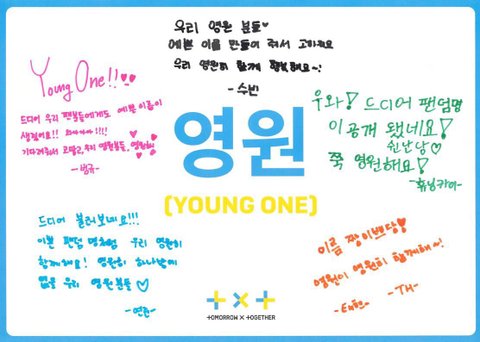 우리 영원 분들♡
예쁜 이름 만들어 줘서 고마워요
우리 영원히 함께 행복해요~!
- 수빈
Young One!!♡♡
드디어 우리 팬분들에게도 예쁜 이름이
생겼어요!! 와아아아!!!!
기다려줘서 고맙고, 우리 영원분들, 영원히
- 범규-
우와! 드디어 팬덤명
이 공개 됐네요!
신난당♡
쭉 영원해요!
-휴닝카이-
영원
(YOUNG ONE)
드디어 불러보네요!!!
이쁜 팬덤 명처럼 우리 영원히
함께해요! 영원히 하나밖에
없을 우리 영원분들♡
-연준-
이름 짱 이쁘당♡
영원이 영원히 함께해~!
-태현-
-TH-
TOMORROW X TOGETHER